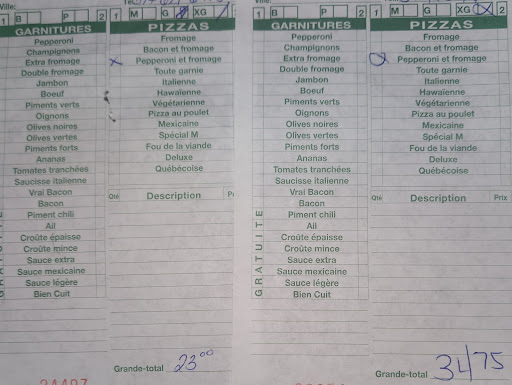 Ville:
1 B P 2
GARNITURES
Pepperoni
Champignons
Extra fromage
Double fromage
Jambon
Boeuf
Piments verts
Oignons
Olives noires
Olives vertes
Piments forts
Ananas
Tomates tranchées
Saucisse italienne
Vrai Bacon
Bacon
Piment chili
Ail
Croûte épaisse
Croûte mince
Sauce extra
Sauce mexicaine
Sauce légère
Bien Cuit
1 M G XG
PIZZAS
Fromage
Bacon et fromage
x Pepperoni et fromage
Toute garnie
Italienne
Hawaïenne
Végétarienne
Pizza au poulet
Mexicaine
Spécial M
Fou de la viande
Deluxe
Québécoise
Qté Description
Grande-total 23.00
1 B P 2
GARNITURES
Pepperoni
Champignons
Extra fromage
Double fromage
Jambon
Boeuf
Piments verts
Oignons
Olives noires
Olives vertes
Piments forts
Ananas
Tomates tranchées
Saucisse italienne
Vrai Bacon
Bacon
Piment chili
Ail
Croûte épaisse
Croûte mince
Sauce extra
Sauce mexicaine
Sauce légère
Bien Cuit
GRATUITE
1 M G XG 2
PIZZAS
Fromage
Bacon et fromage
Pepperoni et fromage
Toute garnie
Italienne
Hawaïenne
Végétarienne
Pizza au poulet
Mexicaine
Spécial M
Fou de la viande
Deluxe
Québécoise
Qté Description Prix
Grande-total 34/75